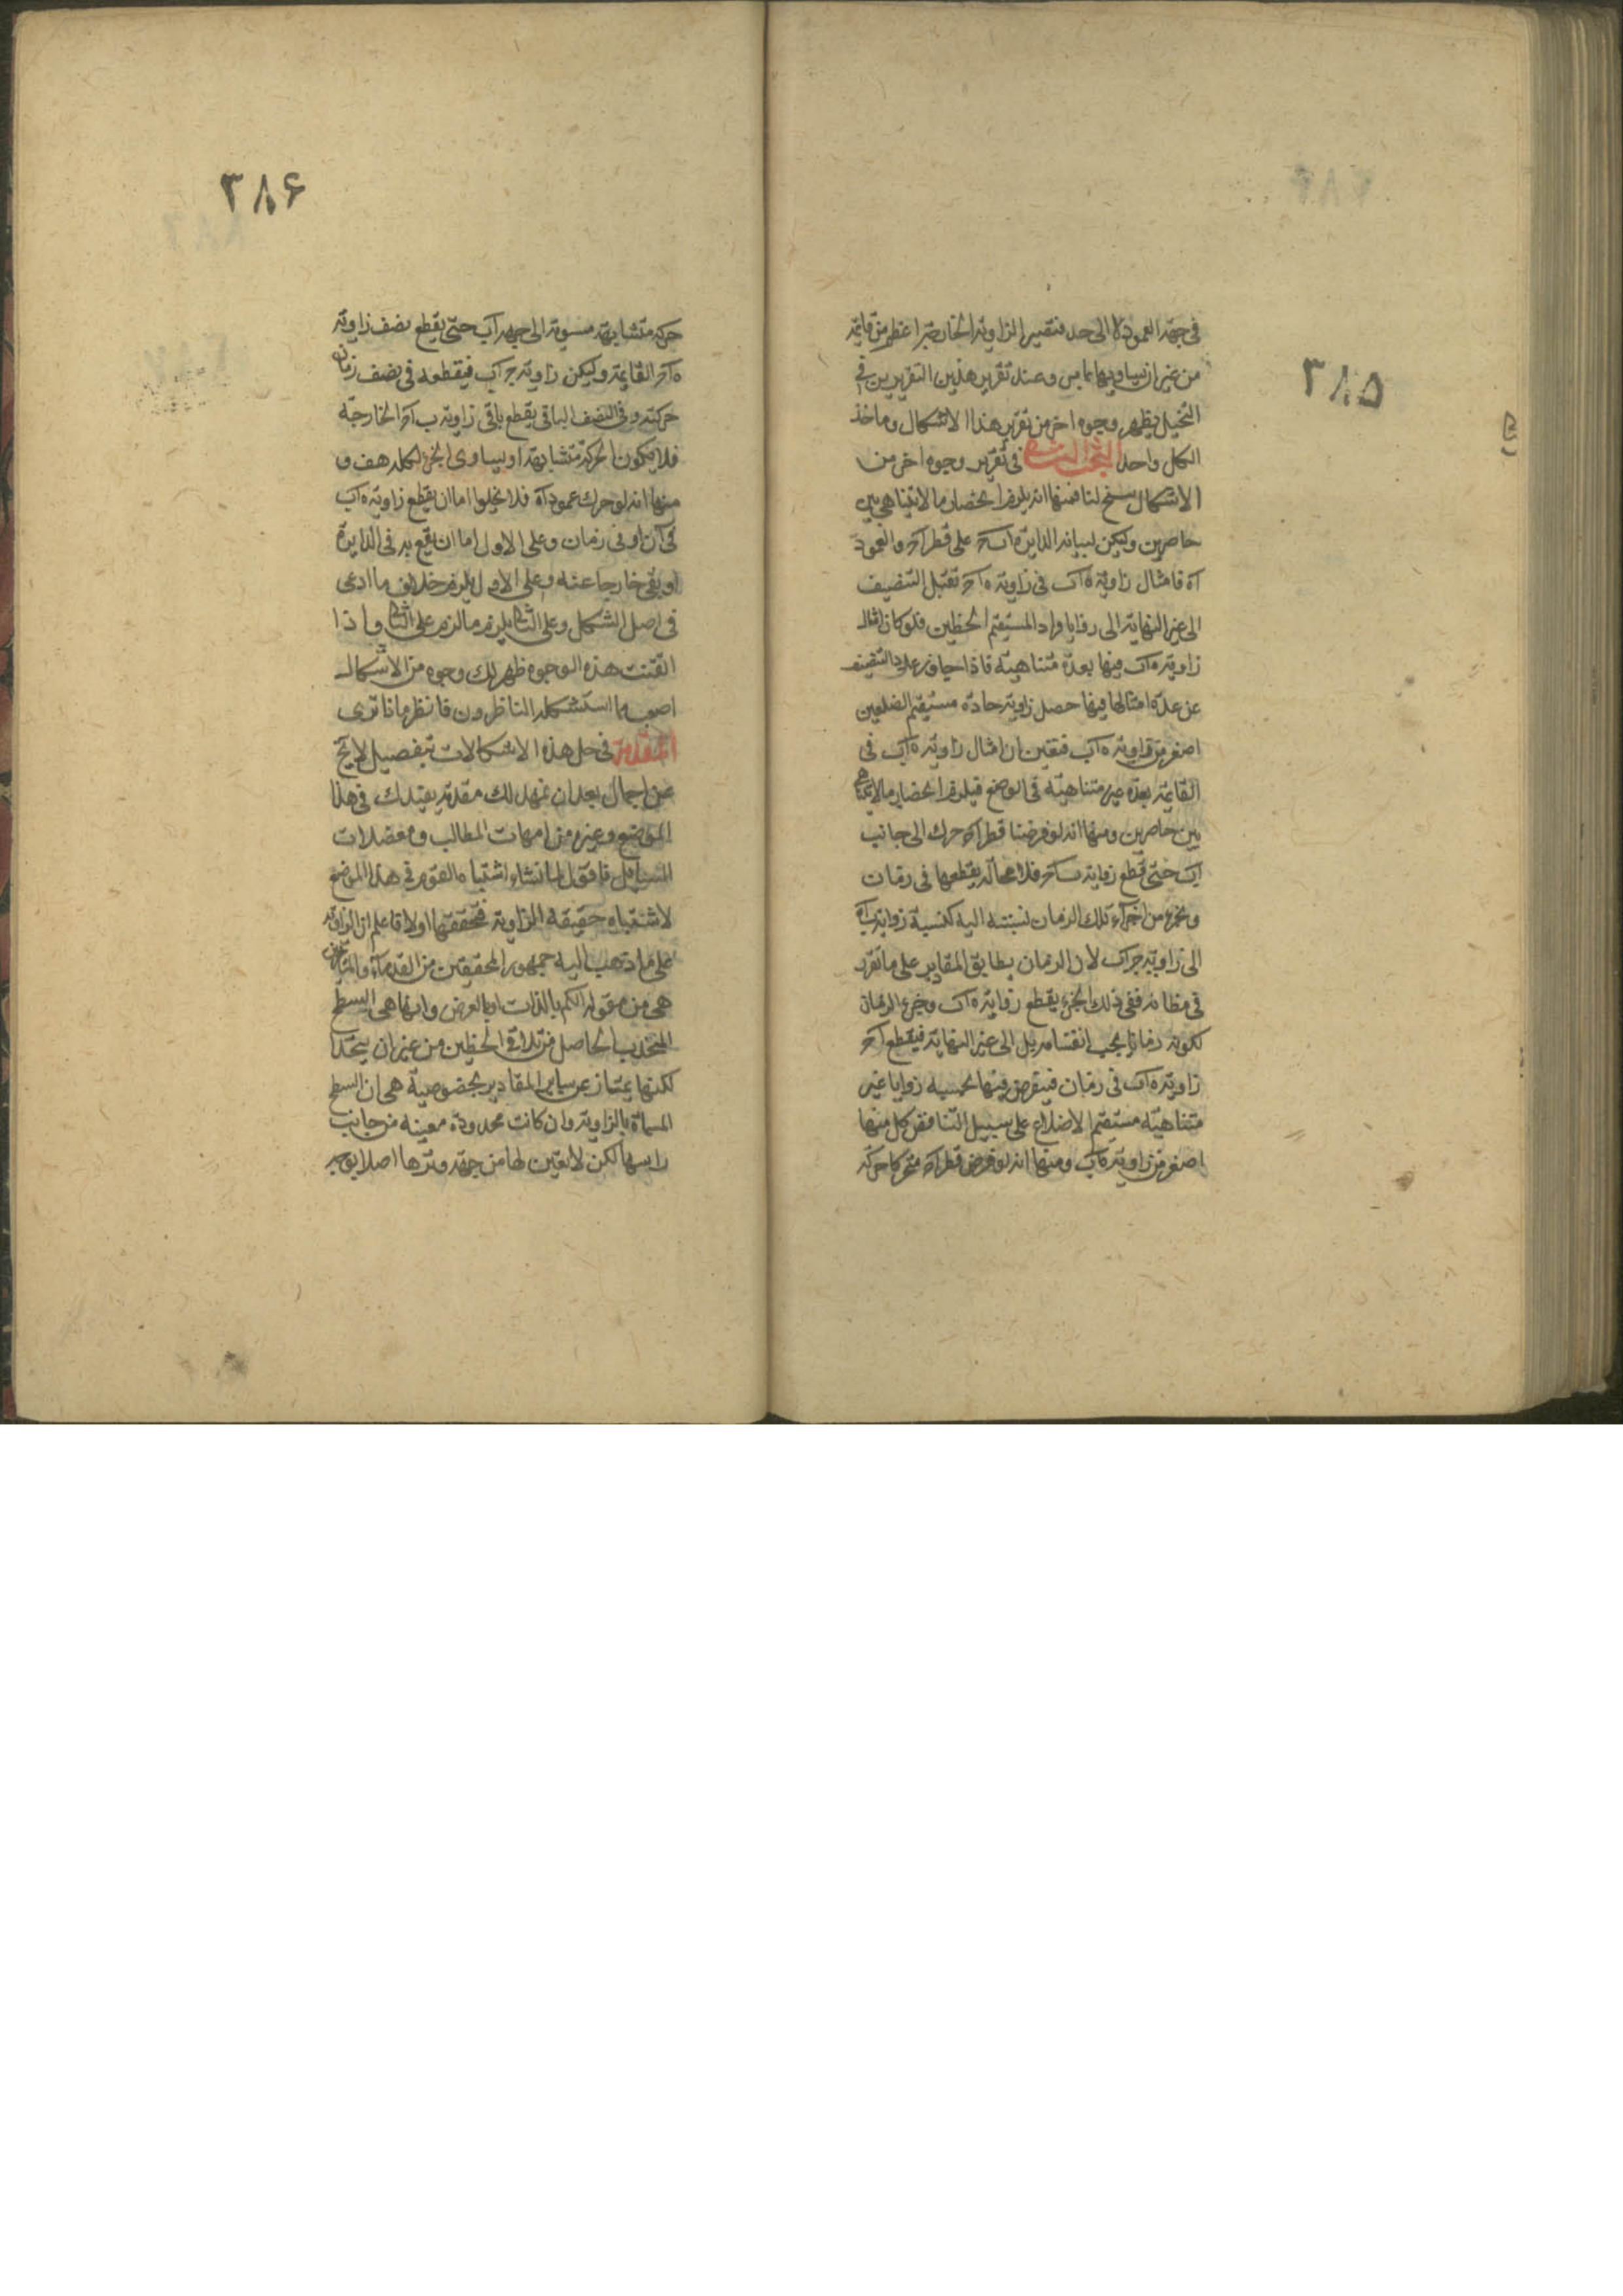 ٣٨۵
فى جهة العمود لا الى حد فتصير الزاوية الخارجة اعظم من قايمة
من غير ان يساويها لما مر وعند تقرير هذين التقريرين فى
التخيل يظهر وجوه اخر من تقرير هذا الاشكال وماخذ
الكل واحد فى تقرير وجوه اخر من
الاشكال سنح لنا فمنها انه يلزم انحصار ما لا يتناهى بين
حاصرين وليكن لبيانه الدايرة اب‍ح على قطر اح والعمود
اه فامثال زاوية ه‍اب فى زاوية ه‍اح تقبل التنصيف
الى غير النهاية الى زوايا حادة مستقيم الخطين فلو كان امثال
زاوية ه‍اب فيها بعدة متناهية فاذا جاوز عدد التنصيف
عن عدة امثالها فيها حصل زاوية حادة مستقيم الضلعين
اصغر من زاوية ه‍اب فتعين ان امثال زاوية ه‍اب فى
القايمة بعدة غير متناهية فى الوضع فيلزم انحصار ما لا يتناهى
بين حاصرين ومنها انه لو فرضنا قطر اح حرك الى جانب
اب حتى قطع زاوية ب‍اح فلا محالة يقطعها فى زمان
وبجزء من اجزاء ذلك الزمان نسبته اليه كنسبة زاوية ب‍اه
الى زاوية ح‍اب لان الزمان يطابق المقادير على ما تقرر
فى مظانه ففى ذلك الجزء يقطع زاوية ه‍اب وجزء الزمان
لكونه زمانا يجب انقسامه بل الى غير النهاية فيقطع اح
زاوية ه‍اب فى زمان فيفرض فيها بحسبه زوايا غير
متناهية مستقيم الاضلاع على سبيل التناقص كل منها
اصغر من زاوية ه‍اب ومنها انه لو فرض قطر اح متحركا حركة
٣٨۶
حركة متشابهة مستوية الى جهة اب حتى يقطع نصف زاوية
ه‍اح القايمة وليكن زاوية ح‍اب فيقطعه فى نصف زمان
حركته وفى النصف الباقى يقطع باقى زاوية ب‍اح الخارجة
فلا يكون الحركة متشابهة او يساوى الجزء لكله هف و
منها انه لو حرك عمود اه فلا يخلوا اما ان يقطع زاوية ه‍اب
فى آن او فى زمان وعلى الاول اما ان يقع به فى الدايرة
او بقى خارجا عنه وعلى الاول يلزم خلاف ما ادعى
فى اصل الشكل وعلى الثانى يلزم ما لزم على الثانى واذا
اتقنت هذه الوجوه ظهر لك وجوه من الاشكال
اصعب مما استشكله الناظرون فانظر ماذا ترى
المقدمة فى حل هذه الاشكالات بتفصيل لايح
عن اجمال بعد ان نمهد لك مقدمة يفيدك فى هذا
الموضع وغيره من امهات المطالب ومعضلات
المسايل فاقول لما نشاء اشتباه القوم فى هذا الموضع
لاشتباه حقيقة الزاوية فنحققها اولا فاعلم ان الزاوية
على ما ذهب اليه جمهور المحققين من القدماء والمتاخرين
هى من مقولة الكم بالذات او بالعرض وانها هى السطح
المنحدب الحاصل من تلاقى الخطين من غير ان يتحدا
لكنها يمتاز عن ساير المقادير بخصوصية هى ان السطح
المسماة بالزاوية وان كانت محدودة معينة من جانب
راسها لكن لا تعين لها من جهة وترها اصلا بوجه